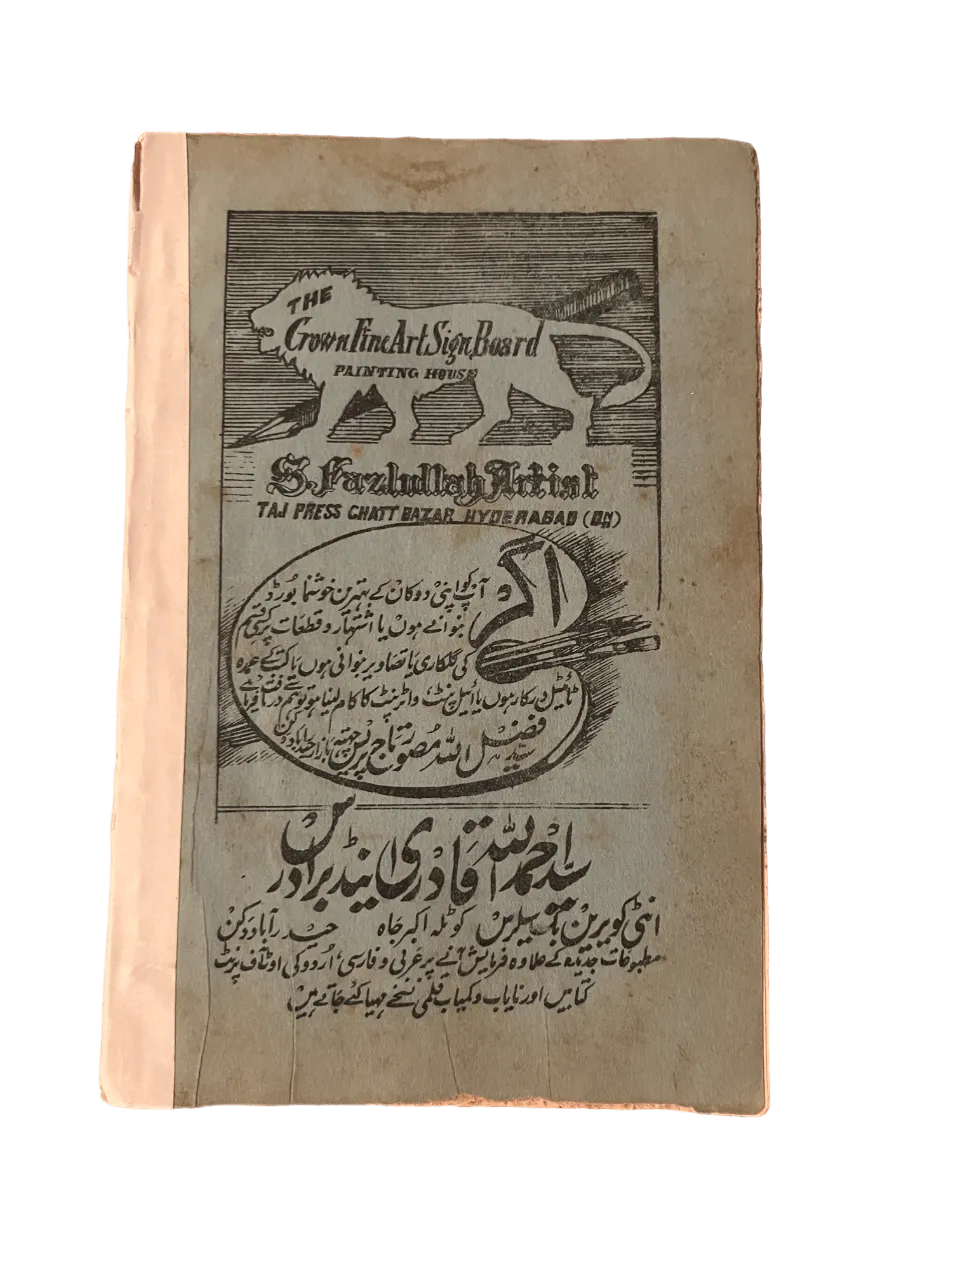 THE
Crown Fine Art Sign Board
PAINTING HOUSE
S. Fazlullah Artist
TAJ PRESS CHATT BAZAR HYDERABAD (DN)
اگر
آپکو اپنی دوکان کے بہترین خوشنما بورڈ
بنوانے ہوں یا اشتہار و قطعات پر کسی قسم
کی گلکاری یا تصاویر بنوانی ہوں یا کتب کے عمدہ
ٹائیٹل درکار ہوں یا آئیل پنٹ، واٹر پنٹ کا کام لینا ہو تو ہم سے
سید فضل اللہ مصور تاج پریس چھتہ بازار حیدرآباد دکن
سید احمد اللہ قادری اینڈ برادرس
انٹی کویرین بک سیلرس کوٹلہ اکبر جاہ حیدرآباد دکن
مطبوعات جدیدہ کے علاوہ فرمایش آنے پر عربی و فارسی، اردو کی اوٹ آف پرنٹ
کتابیں اور نایاب و کمیاب قلمی نسخے مہیا کئے جاتے ہیں